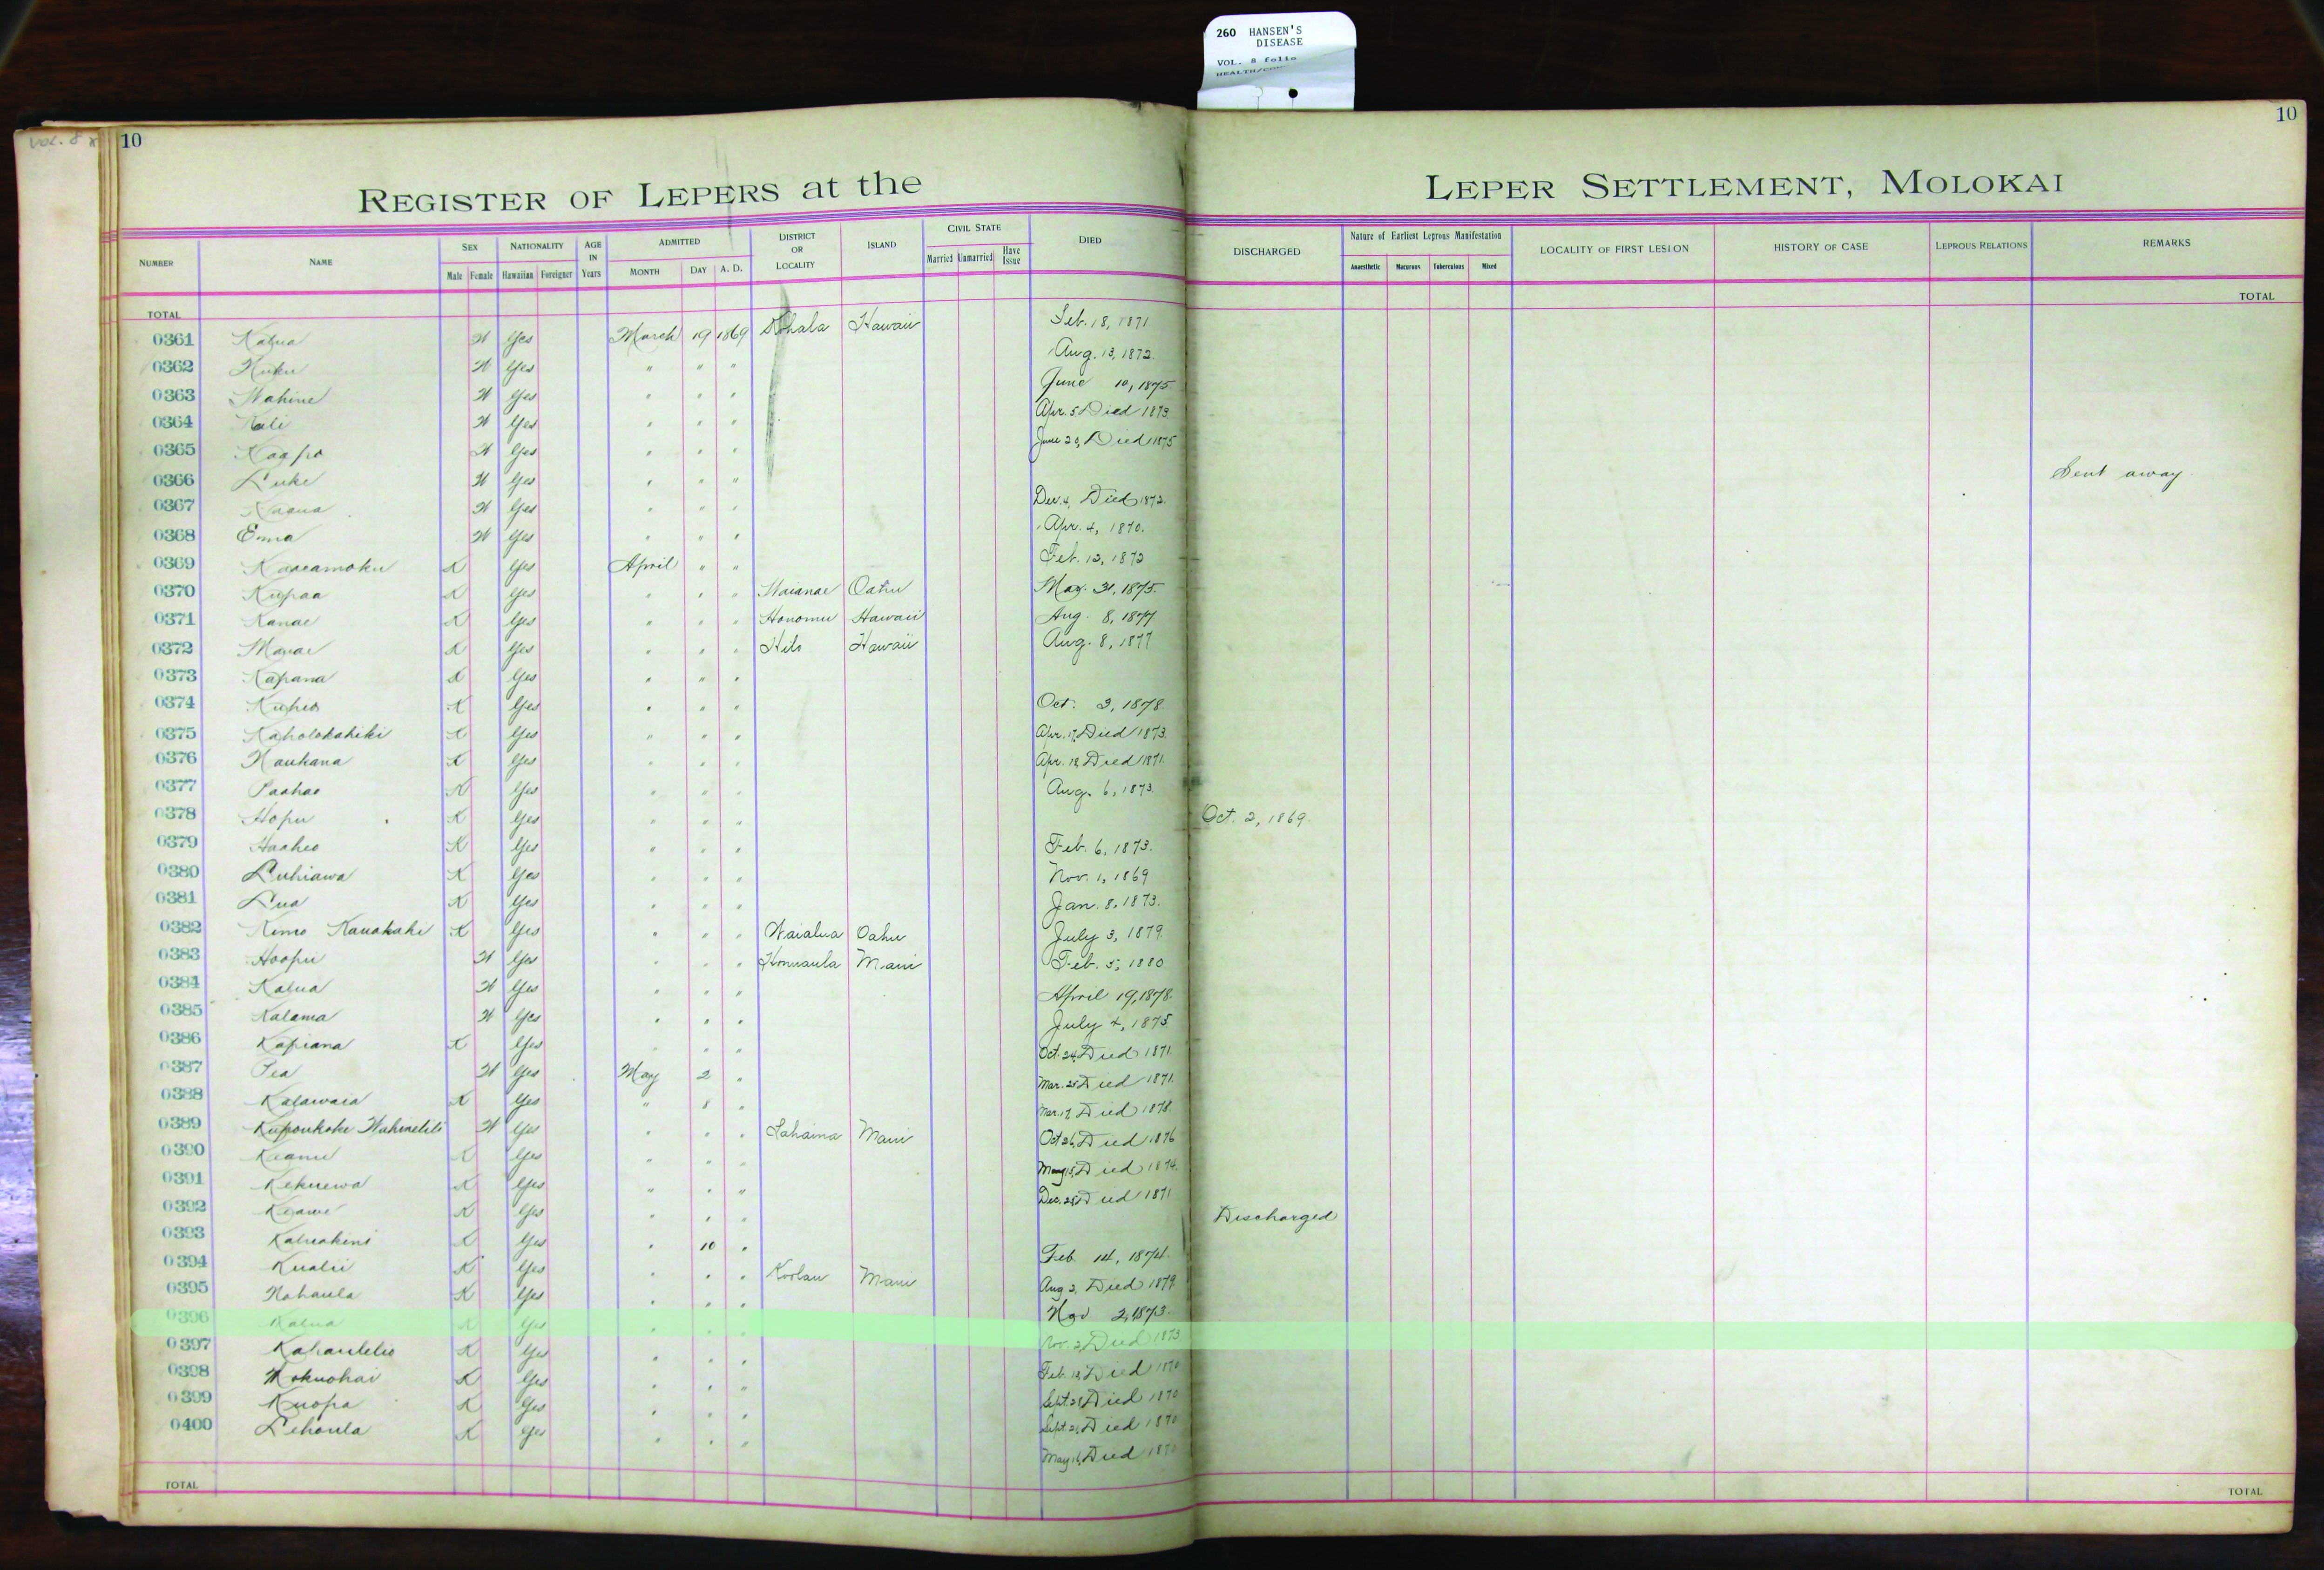 260 HANSEN'S
DISEASE
VOL. 8 folio
VOL. 8
10
10
REGISTER OF LEPERS at the LEPER SETTLEMENT, MOLOKAI
NUMBER NAME SEX NATIONALITY AGE IN Years ADMITTED DISTRICT OR LOCALITY ISLAND CIVIL STATE DIED DISCHARGED Nature of Earliest Leprous Manifestation LOCALITY OF FIRST LESION HISTORY OF CASE LEPROUS RELATIONS REMARKS
Male Female Hawaiian Foreigner MONTH DAY A. D. Married Unmarried Have Issue Anaesthetic Macurous Tuberculous Mixed
TOTAL TOTAL
0361 Kalua W Yes March 19 1869 Kohala Hawaii Feb. 18, 1871
0362 Kuku W Yes " " " Aug. 13, 1872.
0363 Wahine W Yes " " " June 10, 1875
0364 Kali W Yes " " " Apr. 5 Died 1873.
0365 Kaapo W Yes " " " June 20, Died 1875
0366 Luke W Yes " " " Sent away
0367 W Yes " " " Dec. 4, Died 1872.
0368 Emma W Yes " " " Apr. 4, 1870.
0369 Kaaeamoku K Yes April " " Feb. 12, 1872
0370 Kupaa K Yes " " " Waianae Oahu May. 31, 1875.
0371 Kanae K Yes " " " Honomu Hawaii Aug. 8, 1877
0372 K Yes " " " Hilo Hawaii Aug. 8, 1877
0373 Kapana K Yes " " "
0374 Kuheo K Yes " " " Oct. 3, 1878.
0375 Kaholokahiki K Yes " " " Apr. 17, Died 1873.
0376 Naukana K Yes " " " Apr. 18, Died 1871.
0377 Paahao K Yes " " " Aug. 6, 1873.
0378 Hopu K Yes " " " Oct. 2, 1869.
0379 Haaheo K Yes " " " Feb. 6, 1873.
0380 Luhiawa K Yes " " " Nov. 1, 1869
0381 Lua K Yes " " " Jan. 8, 1873.
0382 Kimo Kauakahi K Yes " " " Waialua Oahu July 3, 1879.
0383 Hoopii W Yes " " " Honuaula Maui Feb. 5, 1880
0384 Kalua W Yes " " " April 19, 1878.
0385 Kalama W Yes " " " July 4, 1875
0386 Kapiana K Yes " " " Oct. 24, Died 1871.
0387 Pea W Yes May 2 " Mar. 25 Died 1871.
0388 Kalawaia K Yes " 8 " Mar. 17, Died 1878.
0389 W Yes " " " Lahaina Maui Oct 26, Died 1876
0390 Keanu K Yes " " " May 15, Died 1874.
0391 Kekuewa K Yes " " " Dec. Died 1871
0392 Keawe K Yes " " " Discharged
0393 Kaluakini K Yes " 10 " Feb. 14, 1874.
0394 Kualii K Yes " " " Koolau Maui Aug 2, Died 1879.
0395 Nahaula K Yes " " " Nov 2, 1873.
0396 Kalua K Yes " " " Nov. 2, Died 1873
0397 Kahaulelio K Yes " " " Feb. 18, Died 1870
0398 Mokuohai K Yes " " " Sept. Died 1870
0399 Kuopa K Yes " " " Sept. 21, Died 1870
0400 Lehoula K Yes " " " May 16, Died 1870
TOTAL TOTAL